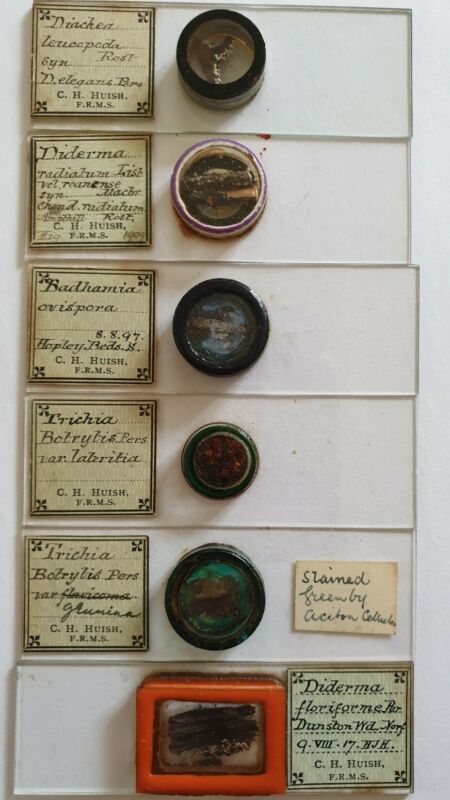 Diachea
leucopoda
syn Rost
D. elegans Pers
C. H. HUISH,
F.R.M.S.
Diderma
radiatum List
vel roanense
syn Macbr.
Chond. radiatum
Ampthill Rost.
Aug. 1904
C. H. HUISH,
F.R.M.S.
Badhamia
ovispora
8.8.97.
Hopley. Beds. S.
C. H. HUISH,
F.R.M.S.
Trichia
Botrytis Pers
var. lateritia
C. H. HUISH,
F.R.M.S.
Trichia
Botrytis Pers
var flavicoma
genuina
C. H. HUISH,
F.R.M.S.
Stained
Green by
Diderma
floriforme Per
Dunston Wd. Norf
9. VIII. 17. HJH.
C. H. HUISH,
F.R.M.S.